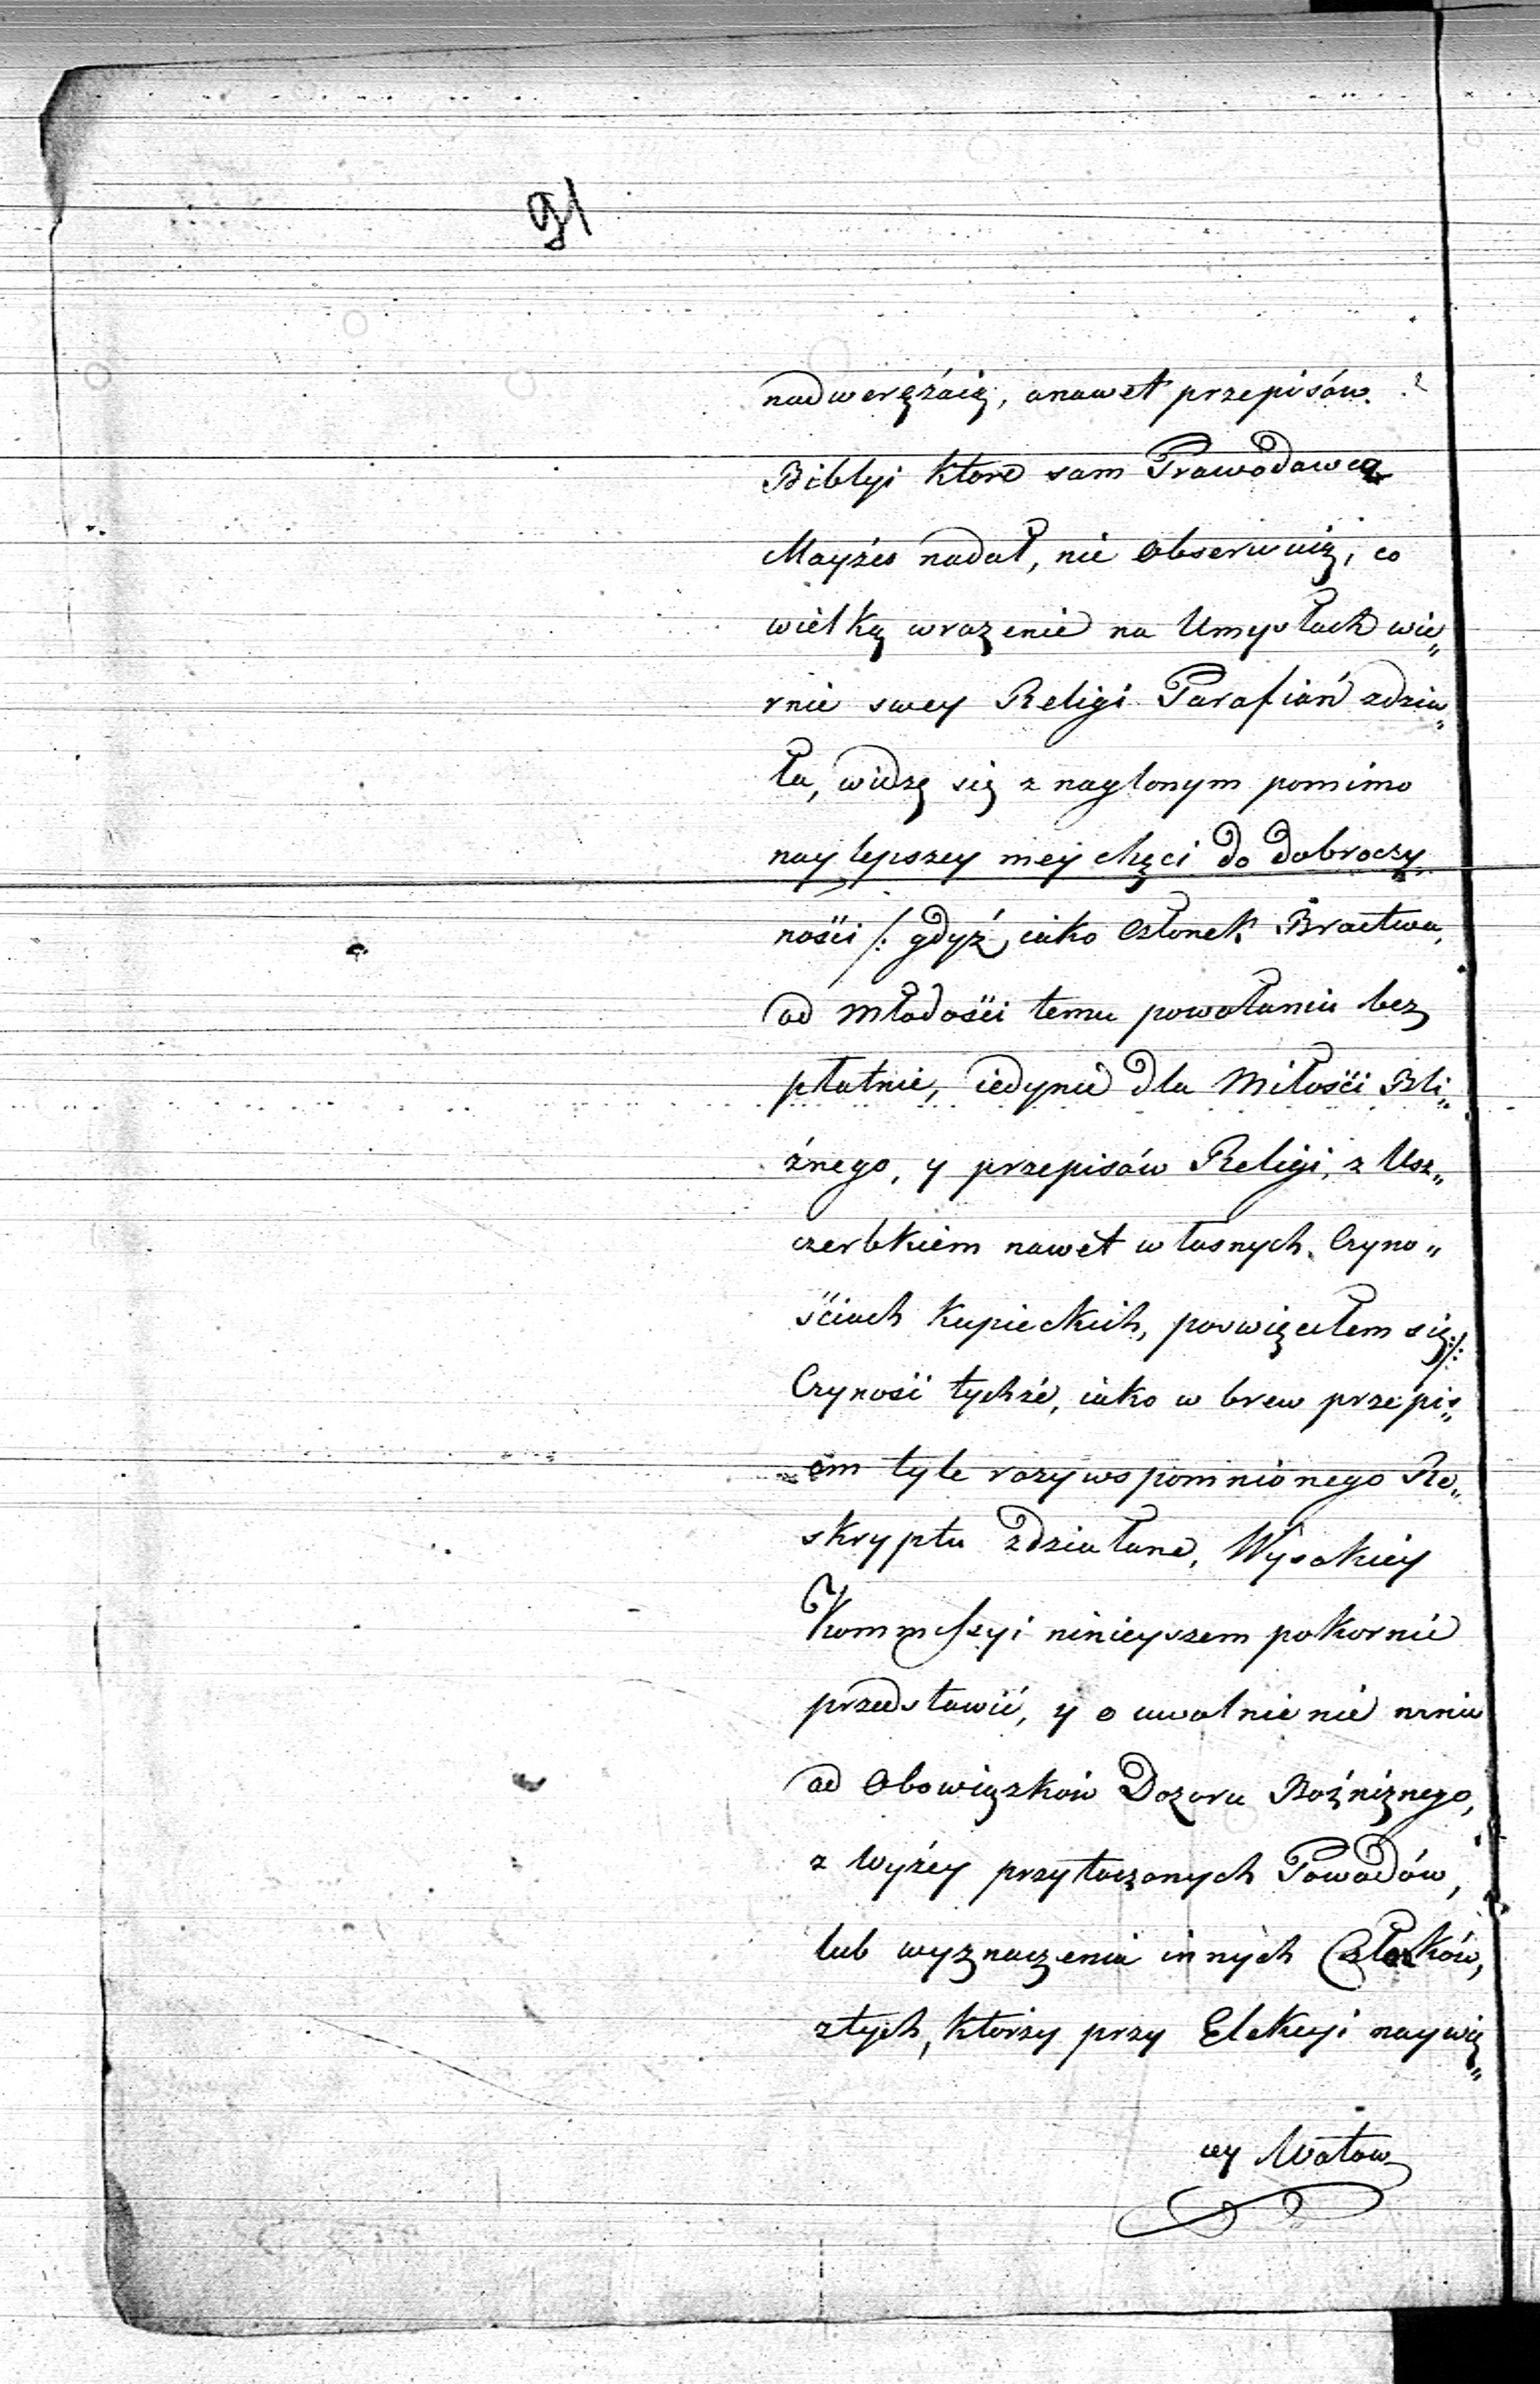 91
nadweręźaią, anawet przepisów
Biblyi ktore sam Prawodawca
Mayźes nadał, nie obserwuią, co
wielką wrazenie na Umysłach wie„
rnie swey Religi Parafiań zdzia„
ła, widzę się znaglonym pomimo
naylepszey mej chęci do dobroczy„
ności /: gdyź, iako Członek Bractwa,
od Młodości temu powołaniu bez
płatnie, iedynie dla Miłości Bli„
źnego, y przepisów Religi, z Usz„
czerbkiem nawet własnych Czyno„
ściach kupieckich, poswięciłem się :/:
Czyności tychźe, iako w brew przepis„
om tyle razy wspomnionego Re„
skryptu zdziałane, Wysokiey
Kommissyi ninieyszem pokornie
przedstawić, y o uwolnienie mnie
od Obowiązków Dozoru Boźniznego,
z wyźey przytoczonych Powodów,
lub wyznaczenia innych Członków,
ztych, ktorzy przy Elekcyi naywię„
cey Wotow